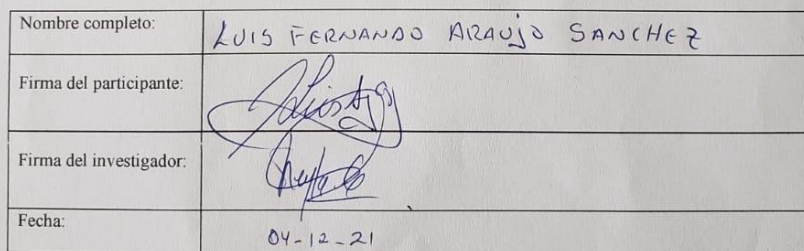 Nombre completo: LUIS FERNANDO ARAUJO SANCHEZ
Firma del participante:
Firma del investigador:
Fecha: 04-12-21